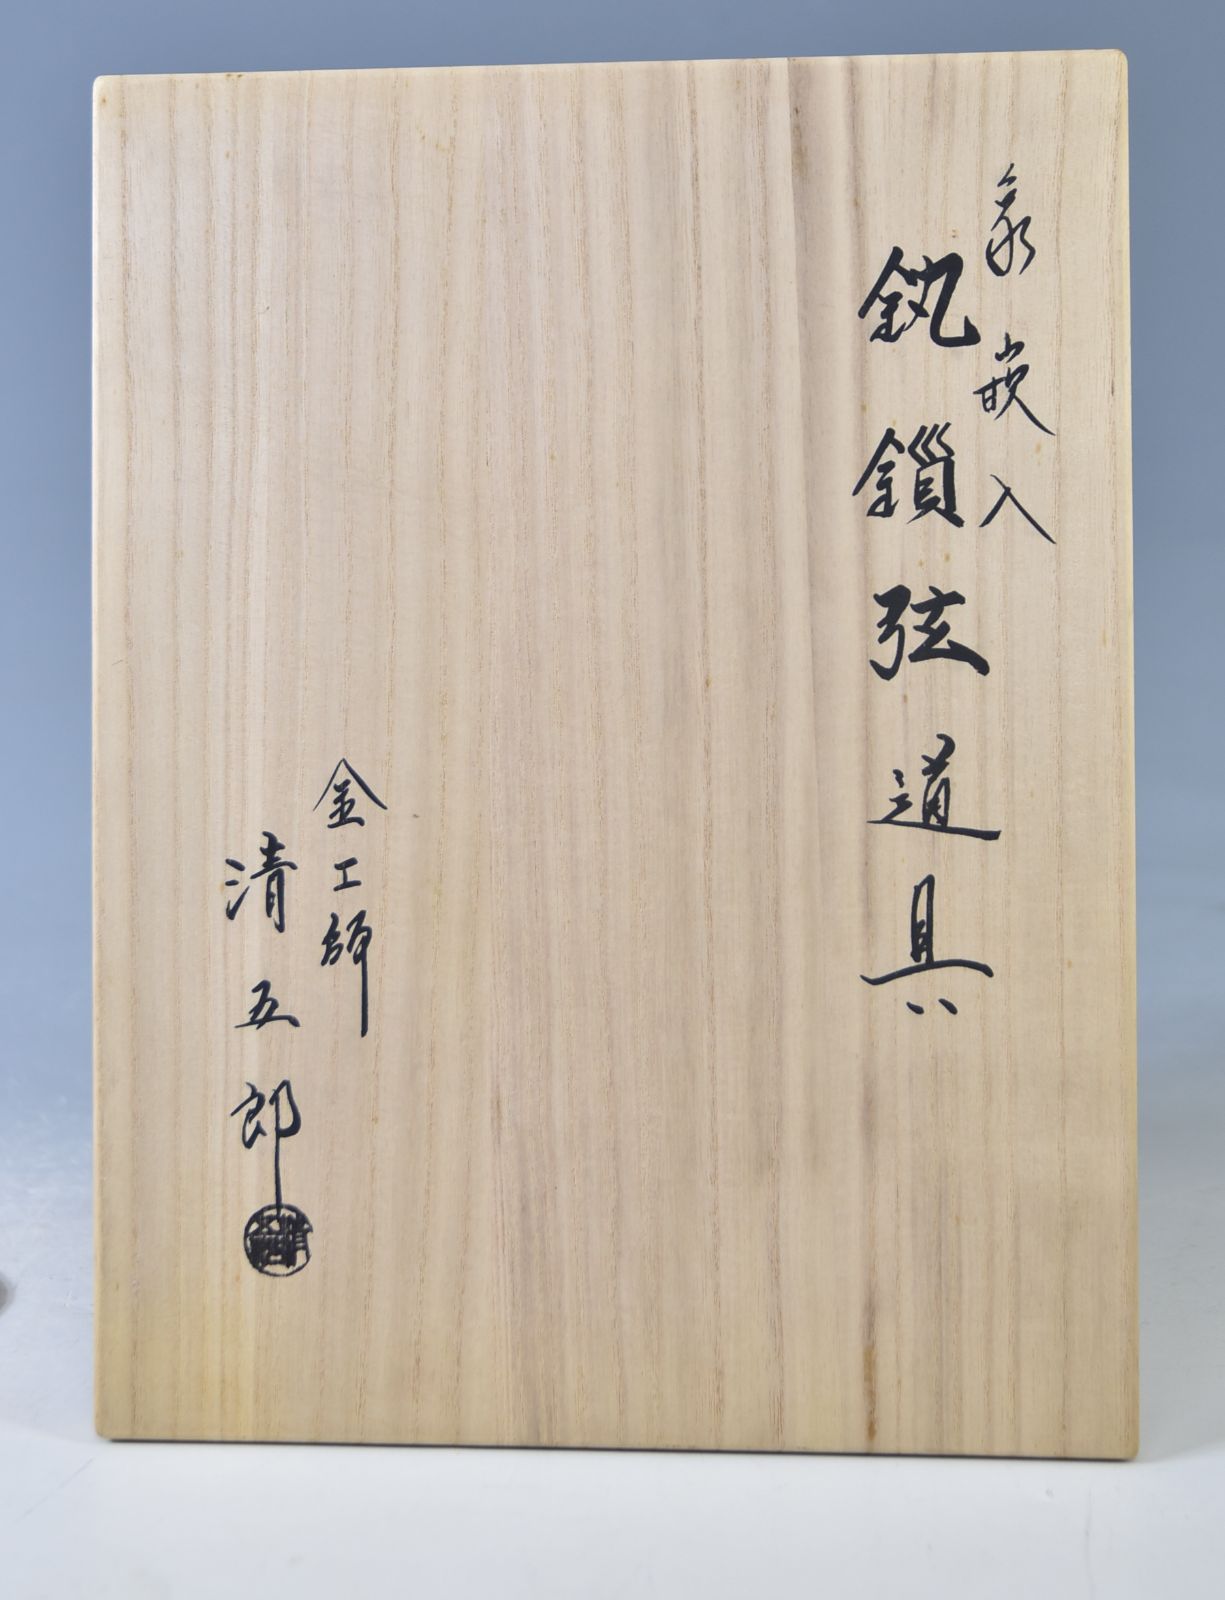 象嵌入
釻鎖弦道具
金工師
清五郎